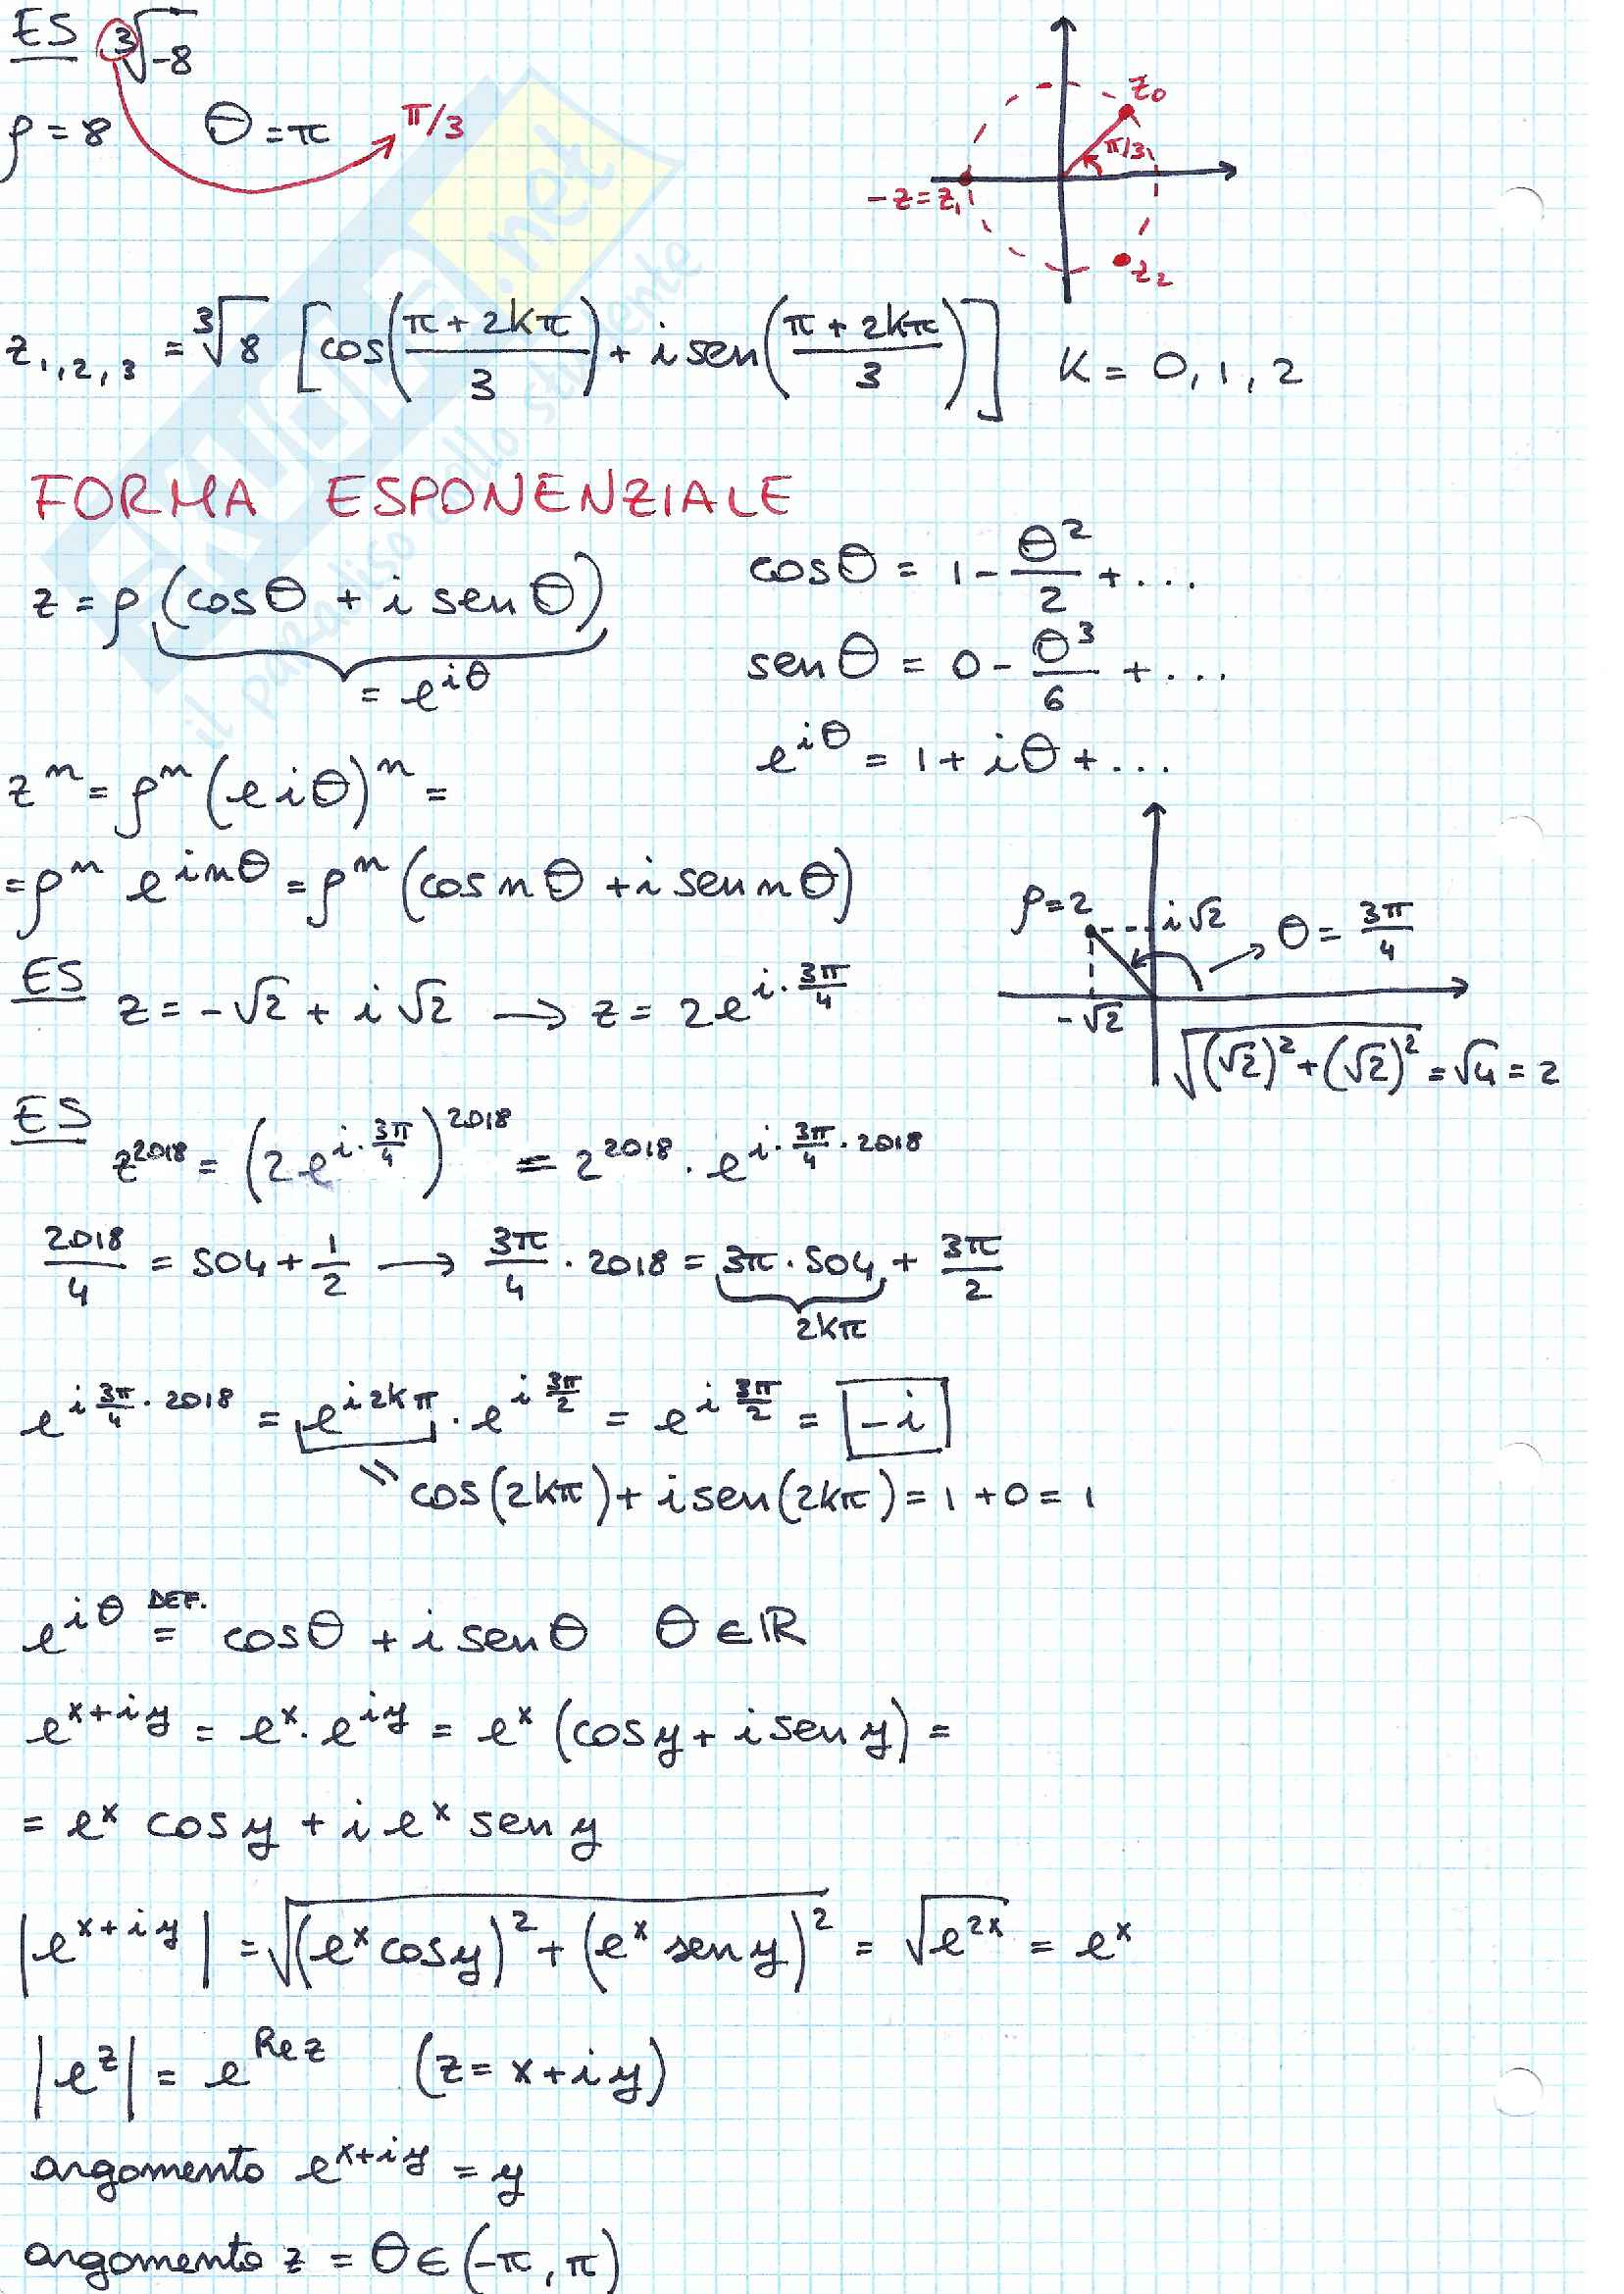 ES ³√-8
ρ = 8 θ = π π/3
z₀
π/3
-z = z₁
z₂
z₁,₂,₃ = ³√8 [cos((π + 2kπ)/3) + i sen((π + 2kπ)/3)] K = 0, 1, 2
FORMA ESPONENZIALE
z = ρ (cosθ + i senθ)
= e^{iθ}
cosθ = 1 - θ²/2 + ...
senθ = 0 - θ³/6 + ...
e^{iθ} = 1 + iθ + ...
zⁿ = ρⁿ (e iθ)ⁿ =
= ρⁿ e^{inθ} = ρⁿ (cos nθ + i sen nθ)
ρ = 2 i√2 θ = 3π/4
-√2
√((√2)² + (√2)²) = √4 = 2
ES z = -√2 + i√2 → z = 2e^{i·3π/4}
ES z^{2018} = (2e^{i·3π/4})^{2018} = 2^{2018} · e^{i·3π/4·2018}
2018/4 = 504 + 1/2 → 3π/4 · 2018 = 3π·504 + 3π/2
2kπ
e^{i 3π/4·2018} = e^{i2kπ} · e^{i 3π/2} = e^{i 3π/2} = -i
" cos(2kπ) + i sen(2kπ) = 1 + 0 = 1
e^{iθ} DEF. = cosθ + i senθ θ ∈ ℝ
e^{x+iy} = e^x · e^{iy} = e^x (cos y + i sen y) =
= e^x cos y + i e^x sen y
|e^{x+iy}| = √((e^x cos y)² + (e^x sen y)²) = √e^{2x} = e^x
|e^z| = e^{Re z} (z = x + iy)
argomento e^{x+iy} = y
argomento z = θ ∈ (-π, π)
.net
il paradiso dello studente